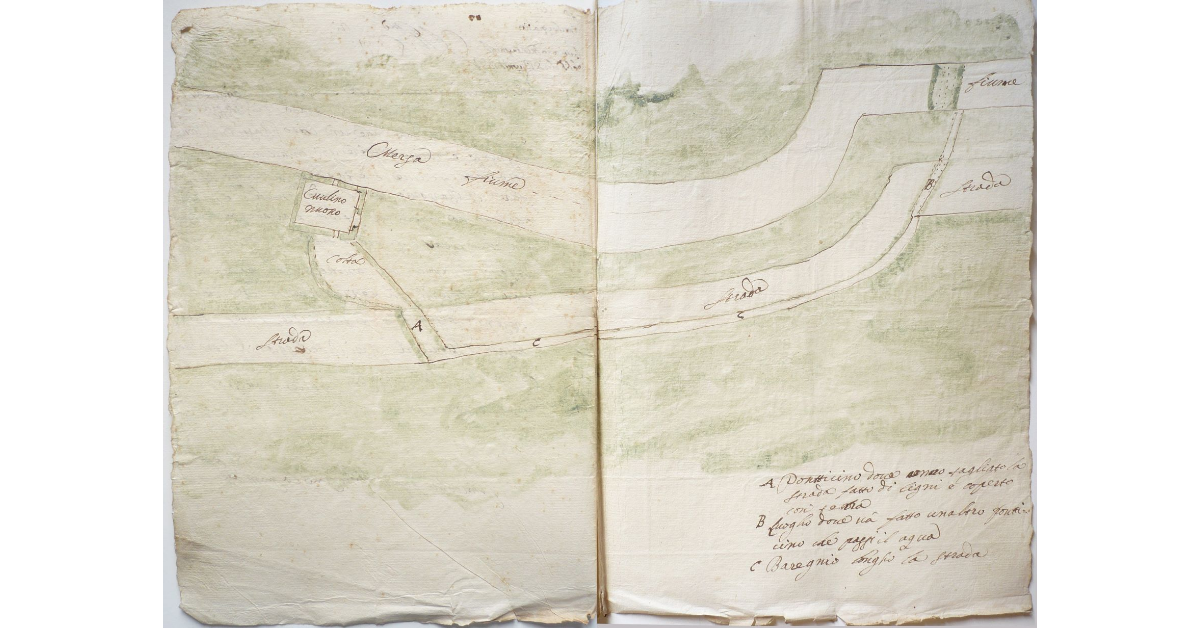 fiume
Merza
fiume
B
strada
Emulino
nuovo
Corta
strada
C
A
strada
C
A Pontticino doue anno tagliato la
strada fatto di legni e coperto
con terra
B Luogho doue uà fatto unaltro ponti=
cino che passi il aqua
C Baregnio longho la strada